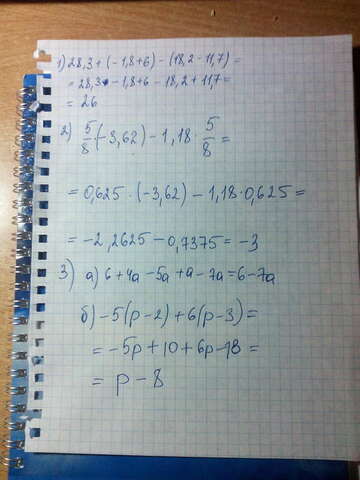 1) 28,3 + (-1,8+6) - (18,2 - 11,7) =
= 28,3 - 1,8 + 6 - 18,2 + 11,7 =
= 26
2) 5/8 (-3,62) - 1,18 · 5/8 =
= 0,625 · (-3,62) - 1,18 · 0,625 =
= -2,2625 - 0,7375 = -3
3) а) 6 + 4a - 5a + a - 7a = 6 - 7a
б) -5(p-2) + 6(p-3) =
= -5p + 10 + 6p - 18 =
= p - 8